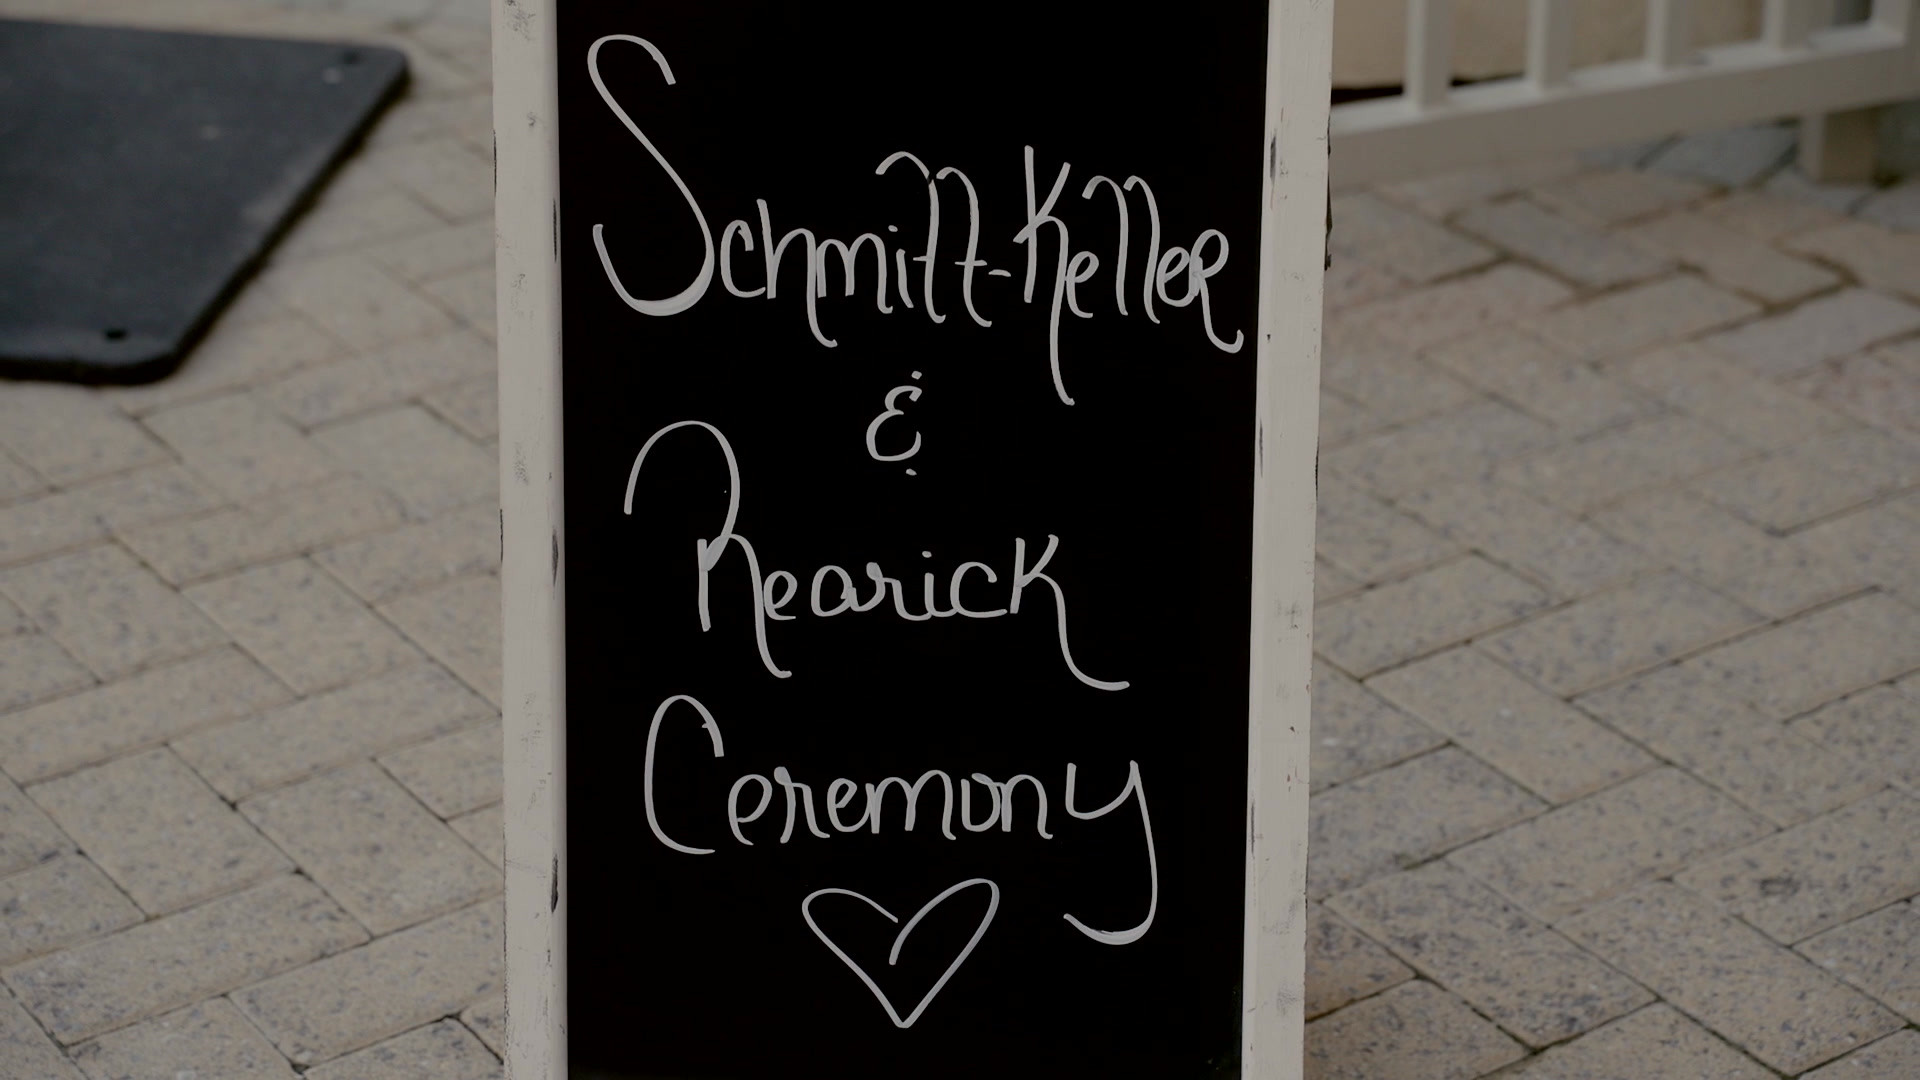 Schmitt-Keller
&
Rearick
Ceremony